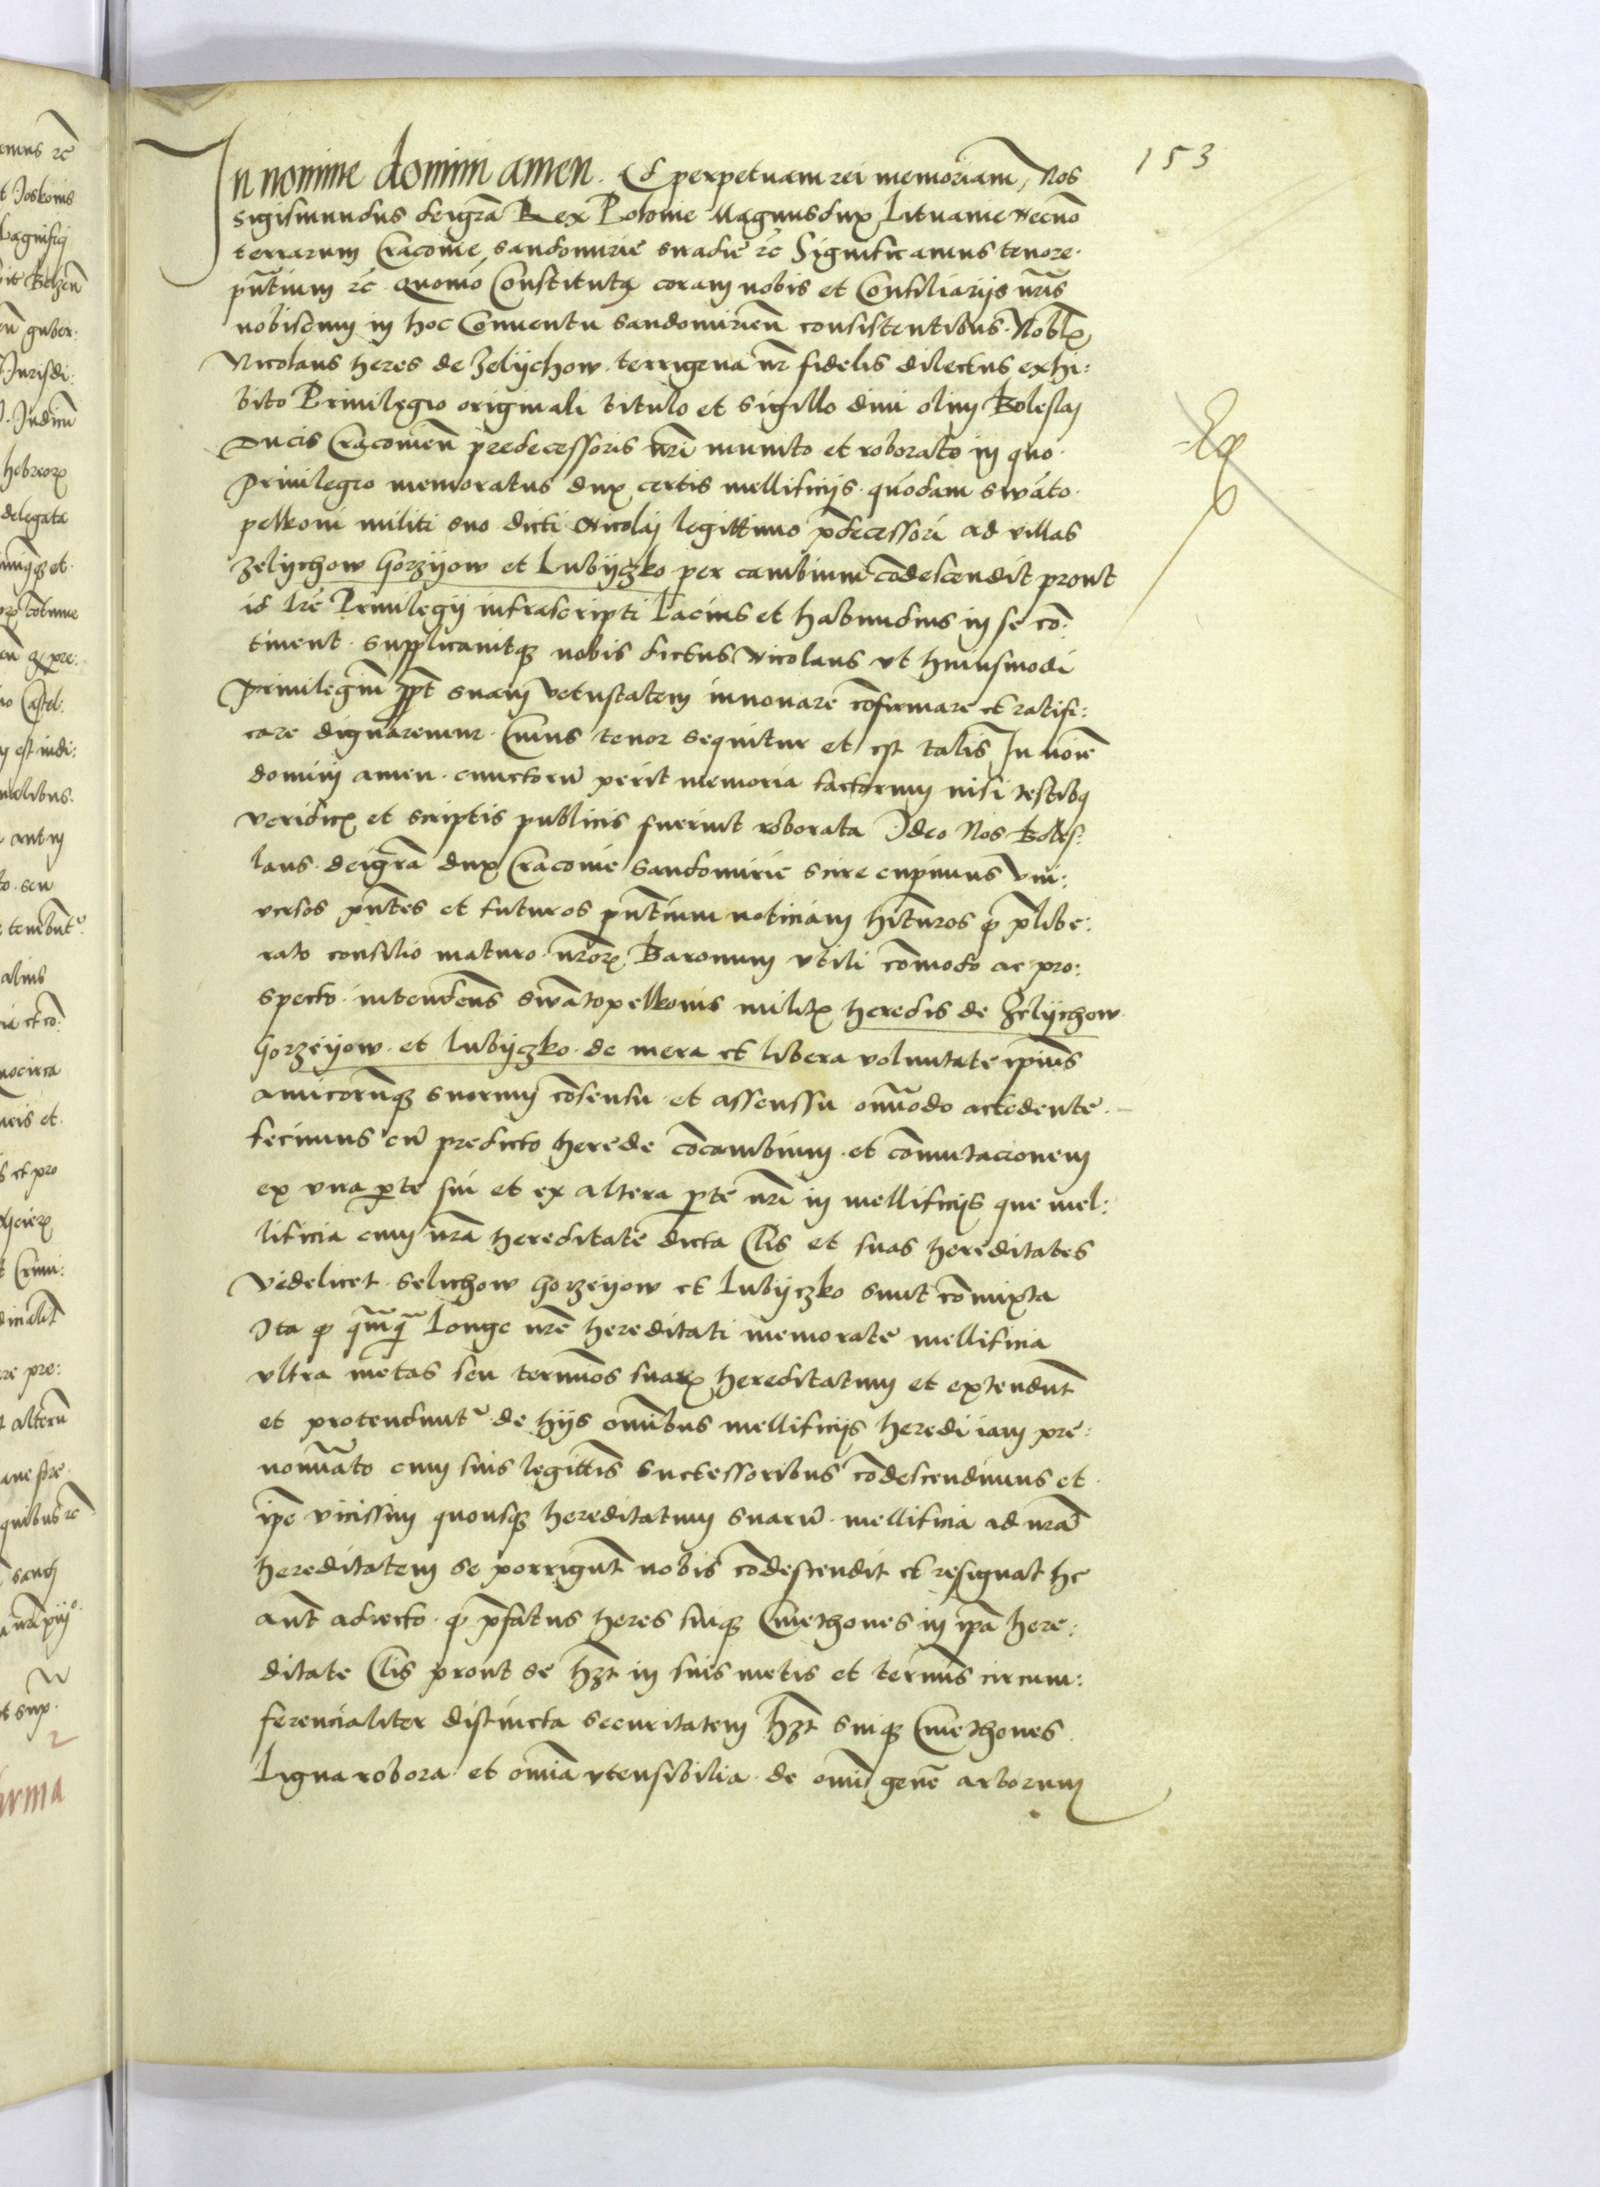 153
In nomine domini amen. Ad perpetuam rei memoriam, Nos
Sigismundus dei grã Rex Polonie Magnus dux Lituanie Necnõ
terrarum Cracovie, sandomirie siradie rẽ Significamus tenore
pñtium rẽ quomõ Constitutus coram nobis et Consiliarijs nr̃is
nobiscum in hoc Conuentu sandomirien̄ consistentibus. Nobilis
Nicolaus heres de Zelijchow terrigena nr̃ fidelis dilectus exhi:
bito Priuilegio originali titulo et sigillo diui olim Boleslaj
Ducis Cracouien̄ predecessoris nr̃i munito et roborato in quo
Priuilegio memoratus dux certis mellificijs quõdam swãto
pelkoni militi suo dicti Nicolaj legittimo p̃decessori ad villas
Zelijchow Gorzijow et Lubijczko per cambium cõdescendit prout
id lrẽ Priuilegij infrascripti Lacius et habundius in se cõ:
tinent. supplicauitq nobis dictus Nicolaus vt huiusmodi
Priuilegiũ ppt suam vetustatem innouare cõfirmare et ratifi:
care dignaremur. Cuius tenor sequitur et est talis In noiẽ
domini amen. cunctorũ perit memoria factorum nisi testibus
veridicis et scriptis publicis fuerint roborata Ideo Nos Boles:
laus dei grã dux Cracouie sandomirie scire cupimus vni:
versos pñtes et futuros pñtium noticiam hituros q p̃libe:
rato consilio maturo nr̃orum Baronum vtili cõmodo ac pro:
specto intendens swãtopelkonis militis heredis de Zelijchow
Gorzeijow et Lubijczko de mera et libera voluntate ipius
amicorũq suorum cõsensu et assenssu om̃odo accedente
fecimus cũ predicto herede cõcambium et cõmutacionem
ex vna pte sui et ex altera pte nr̃i in mellificijs que mel:
lificia cum nrã hereditate dicta Clis et suas hereditates
Videlicet Selichow Gorzeijow et Lubijczko sunt cõmixta
Ita q Longe nrẽ hereditati memorate mellificia
vltra metas seu terminos suarum hereditatum et extendunt
et protenduntr de hijs omibus mellificijs heredi iam pre:
nominato cum suis legittis successoribus cõdescendimus et
ipe vicissim quousq hereditatum suarũ mellificia ad nrã
hereditatem se porrigunt nobis cõdescendit et resignat hc
aut adiecto q p̃fatus heres suiq Cmethones in ipa here:
ditate Clis prout se hzt in suis metis et terminis circum:
ferencialiter distincta securitatem hzt suiq Cmethones
Ligna robora et omia vtensibilia de omi genẽ arborum